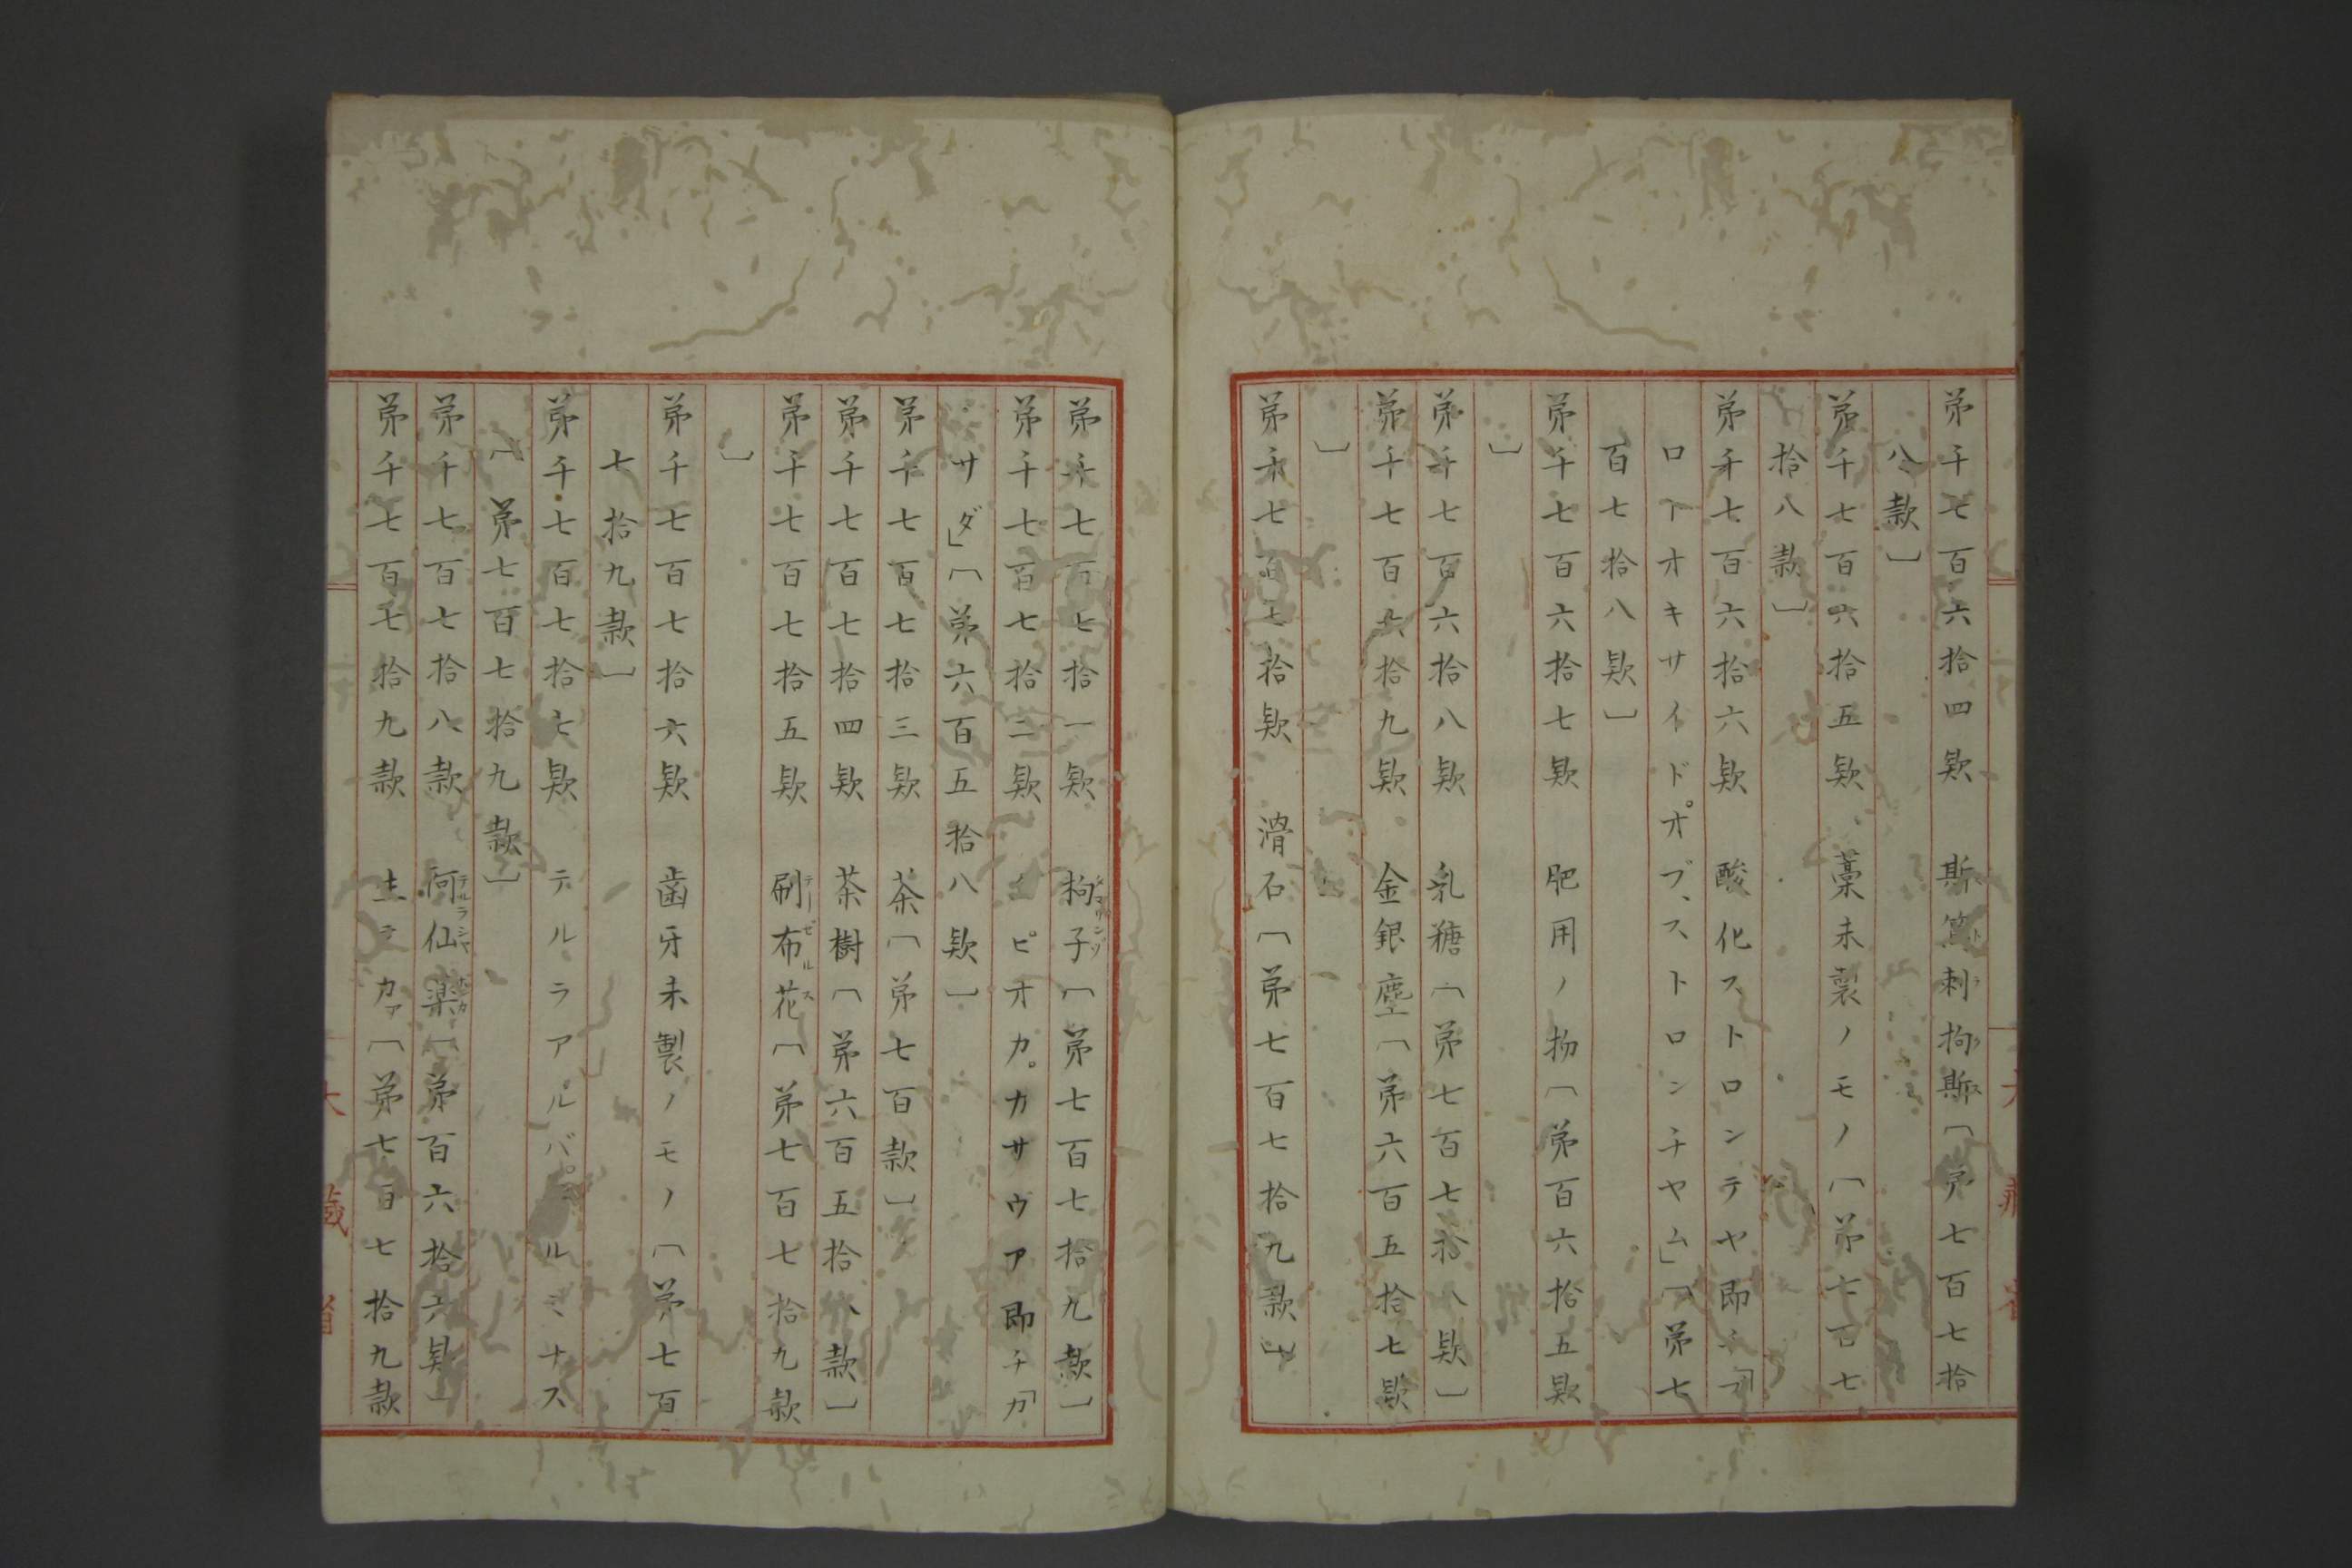 第千七百六拾四欵　斯篤剌拘斯〔第七百七拾
八款〕
第千七百六拾五欵　藁未製ノモノ〔第七百七
拾八款〕
第千七百六拾六欵　酸化ストロンテヤ即チ「プ
ロトオキサイドオブ、ストロンチヤム」〔第七
百七拾八欵〕
第千七百六拾七欵　肥用ノ物〔第百六拾五欵
〕
第千七百六拾八欵　乳糖〔第七百七拾八欵〕
第千七百六拾九欵　金銀塵〔第六百五拾七欵
〕
第千七百七拾欵　滑石〔第七百七拾九款〕
第千七百七拾一欵　拘子〔第七百七拾九款〕
第千七百七拾二欵　ピオカ。カサウア即チ「カ
サダ」〔第六百五拾八欵〕
第千七百七拾三欵　茶〔第七百款〕
第千七百七拾四欵　茶樹〔第六百五拾八款〕
第千七百七拾五欵　刷布花〔第七百七拾九款
〕
第千七百七拾六欵　歯牙未製ノモノ〔第七百
七拾九款〕
第千七百七拾七欵　テルラアルバ ルミナス
〔第七百七拾九款〕
第千七百七拾八款　何仙薬〔第百六拾六欵〕
第千七百七拾九款　土ラカァ〔第七百七拾九款
大藏省